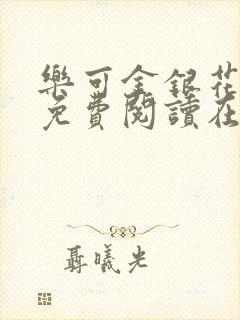 樂可金銀花
免費閱讀在
聶曦光